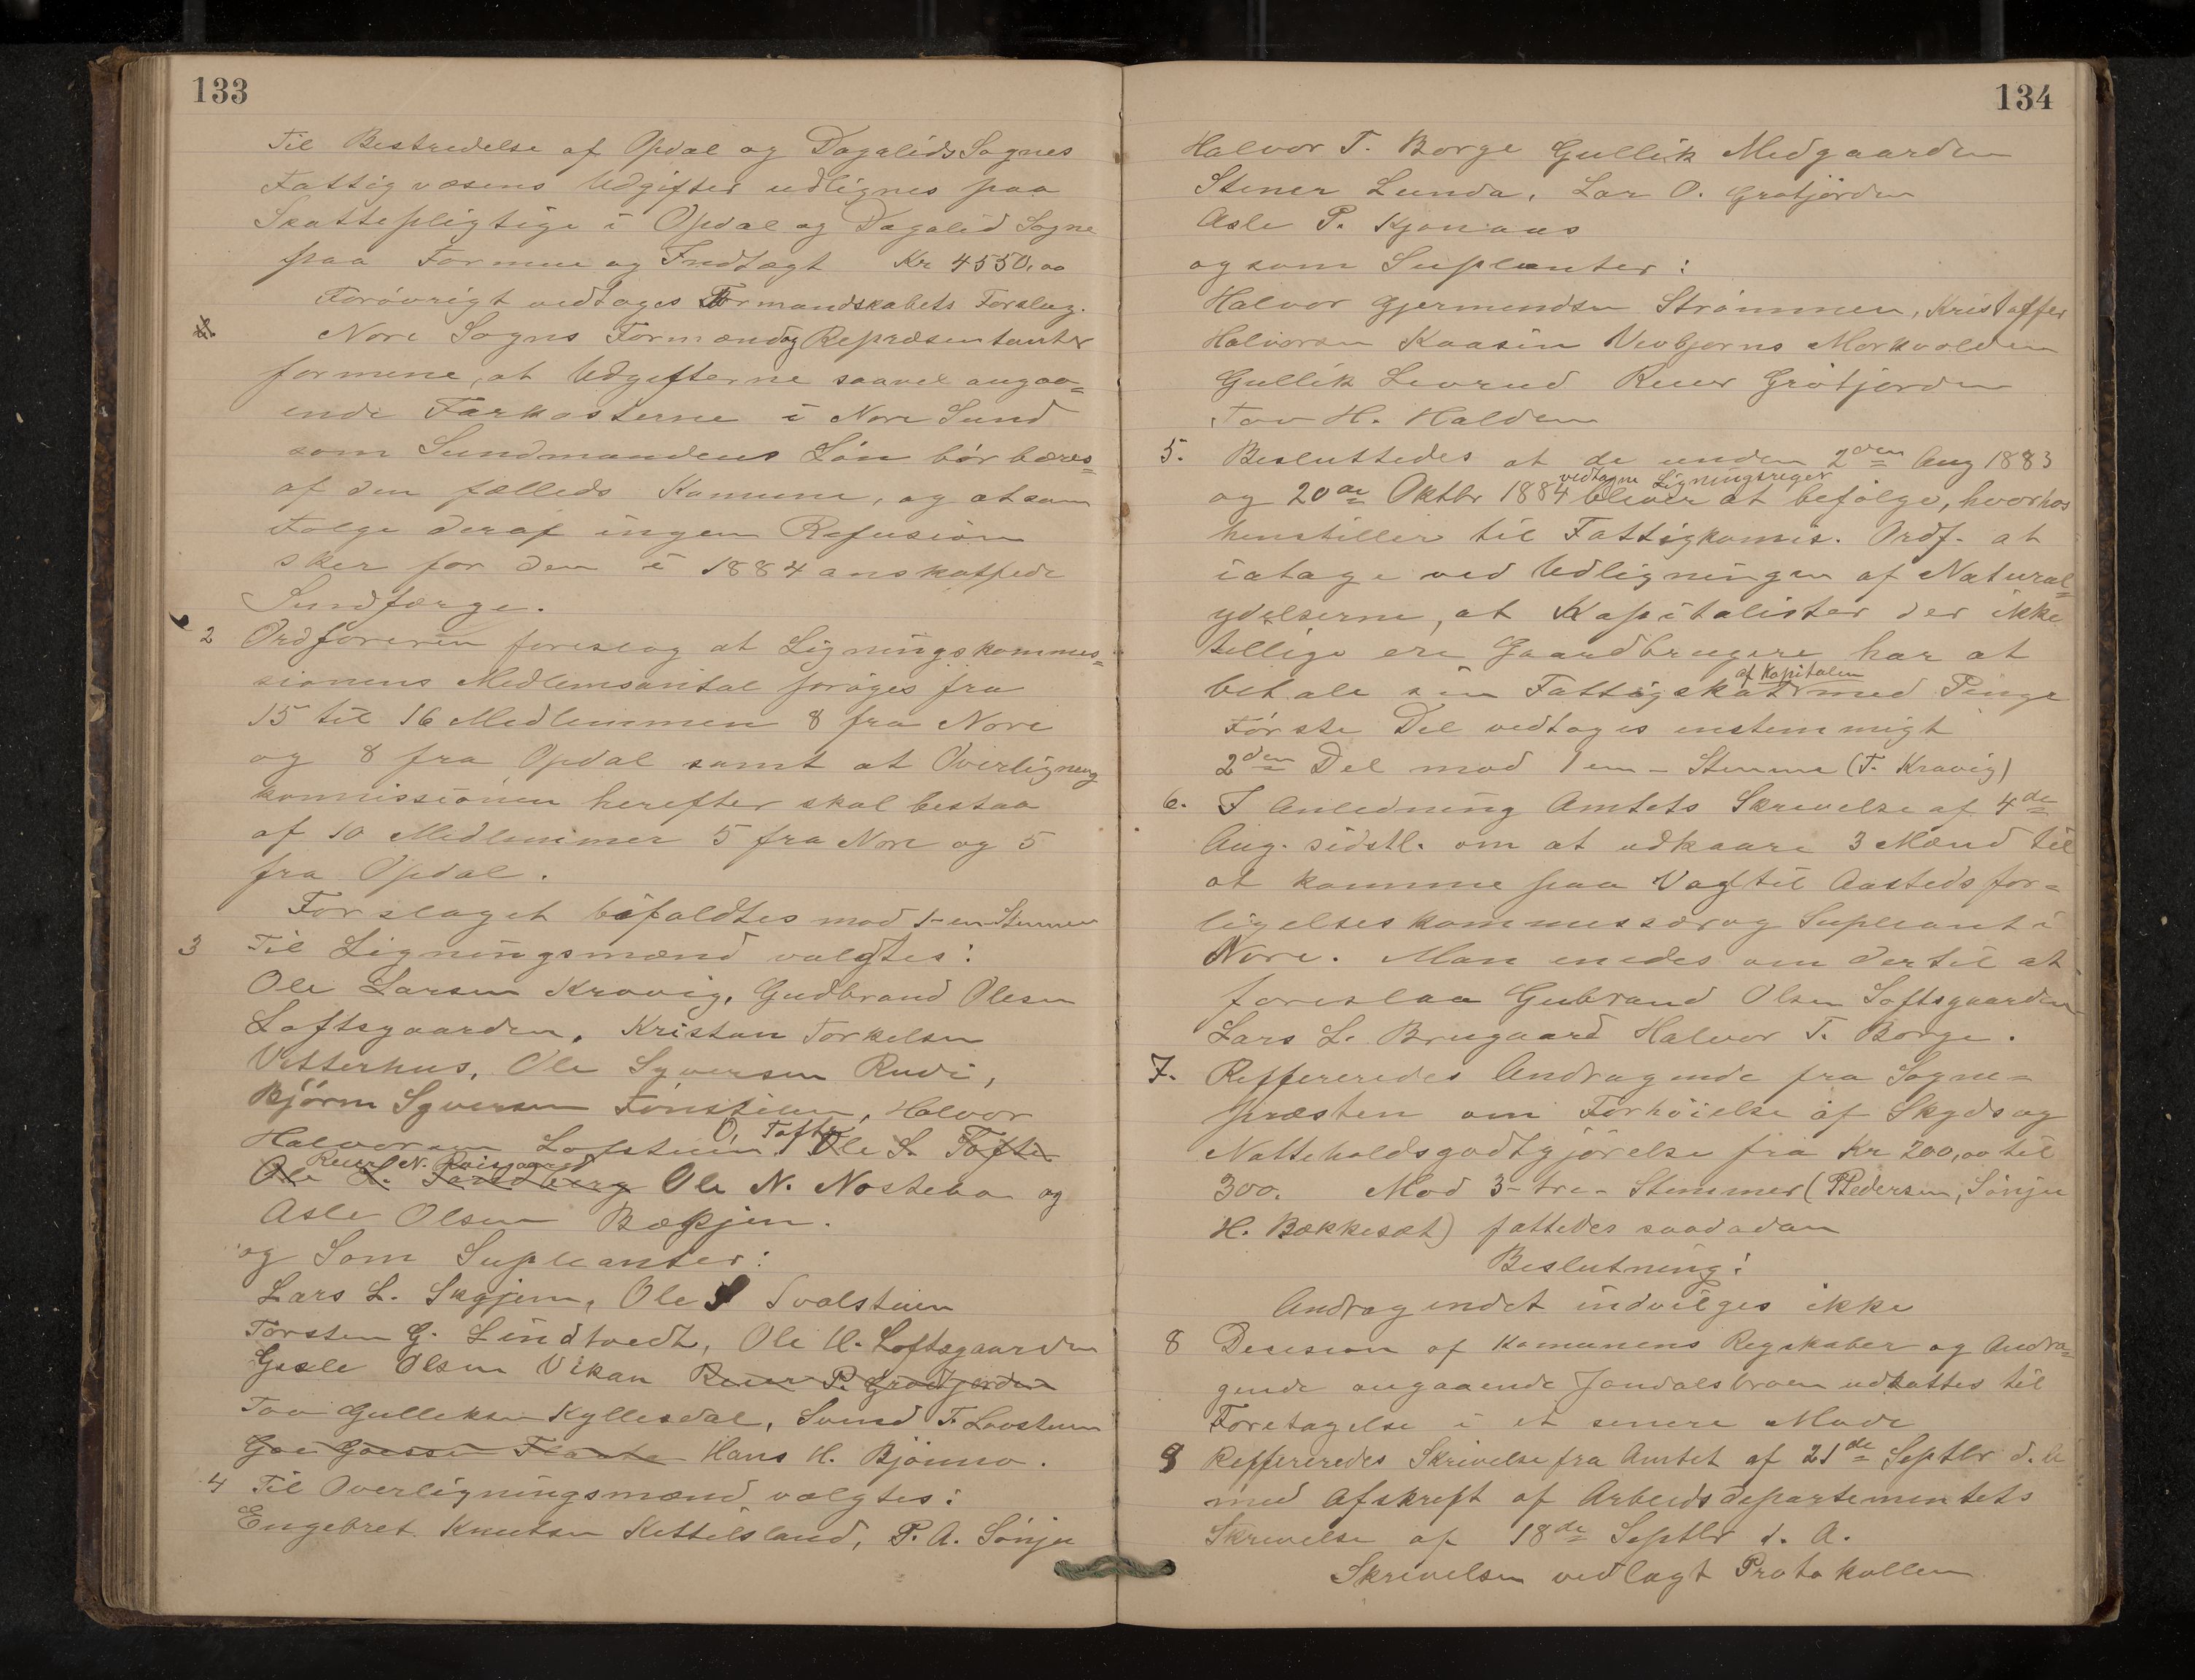 133
Til Bestredelse af Opdal og Dagalids Sognes
Fattigvæsens Udgifter udlignes paa
Skattepligtige i Opdal og Dagalid Sogne
paa Formue og Indtægt Kr 4550,00
Forøvrigt vedtages Formandskabets Forslag.
Nore Sogns Formænd og Repræsentanter
formene, at Udgifterne saavel angaa=
ende Farkosterne i Nore Sund
som Sundmandens Løn bør bæres=
af den fælleds Komune, og at som
Følge deraf ingen Refusion
sker for den i 1884 anskaffede
Sundfærge.
2 Ordføreren foreslog at Ligningskommis=
sionens Medlemsantal forøges fra
15 til 16 Medlemmer 8 fra Nore
og 8 fra Opdal samt at Overligning
kommissionen herefter skal bestaa
af 10 Medlemmer 5 fra Nore og 5
fra Opdal.
Forslaget bifaldtes mod 1-en Stemme
3 Til Ligningsmænd valgtes:
Ole Larsen Kravig, Gudbrand Olesen
Loftsgaarden, Kristan Torkelsen
Vetterhus, Ole Syversen Rudi,
Bjørn Syversen Fønstelien, Halvor
O. Tofte
Halvorsen Ole S. Tofte
Reier N.
Ole L. Sandberg Ole N. Nostebø og
Asle Olsen
og Som Supleanter:
Lars L. Skjøjem, Ole
Torsten G. Lindtvedt, Ole H. Loftsgaarden
Olsen Vikan Reier P. Grøtjorden
Tov Gulleksen Kyllesdal, Svend T.
Hans H. Bjønno.
4 Til Overligningsmænd valgtes:
Engebret Knutsen Kettilsland, P. A. Sønju
134
Halvor T. Borge Gullik Medgaarden
Stener Lunda, Lar O. Grøtjorden
Asle P. Kjønaas
og som Supleanter:
Halvor Gjermundsen Strømmen, Kristoffer
Halvorsen Kaasin Vevbjørns Morkvolden
Gullik Levrud Reier Grøtjorden
Tov H. Halden
5. Besluttedes at de under 2den Aug 1883
vedtagne Ligningsreger
og 20de Oktbr 1884 bliver at befølge, hvorhos
henstiller til Fattigkomis. Ordf. at
iatage ved Udligningen af Natural=
ydelserne, at Kapitalister der ikke
tillige ere Gaardbrugere har at
af Kapitalen
betale sin Fattigskat med Penge
Første Del vedtages enstemmigt
2den Del mod 1 en - Stemme (T. Kravig)
6. I Anledning Amtets Skrivelse af 4de
Aug. sidstl. om at udkaare 3 Mænd til
at komme paa Valg til Aastedsfor=
ligelseskommissær og Supleant i
Nore. Man enedes om dertil at
foreslaa Gubrand Olsen Loftsgaarden
Lars L. Brugaard Halvor T. Borge.
7. Reffereredes Andragende fra Sogne=
præsten om Forhøielse af Skyds og
Natteholdsgodtgjørelse fra Kr 200,00 til
300. Mod 3-tre-Stemmer (P. Pedersen, Sønju
H. Bækkesæt) fattedes saadadan
Beslutning:
Andragendet indvilges ikke
8 Desision af Komunens Regskaber og Andra=
gende angaaende Jondalsbroen udsattes til
Foretagelse i et senere Møde
9 Reffereredes Skrivelse fra Amtet af 21de Septbr d. A
med Afskrift af Arbeidsdepartementets
Skrivelse af 18de Septbr d. A.
Skrivelsen vedlagt Protokollen